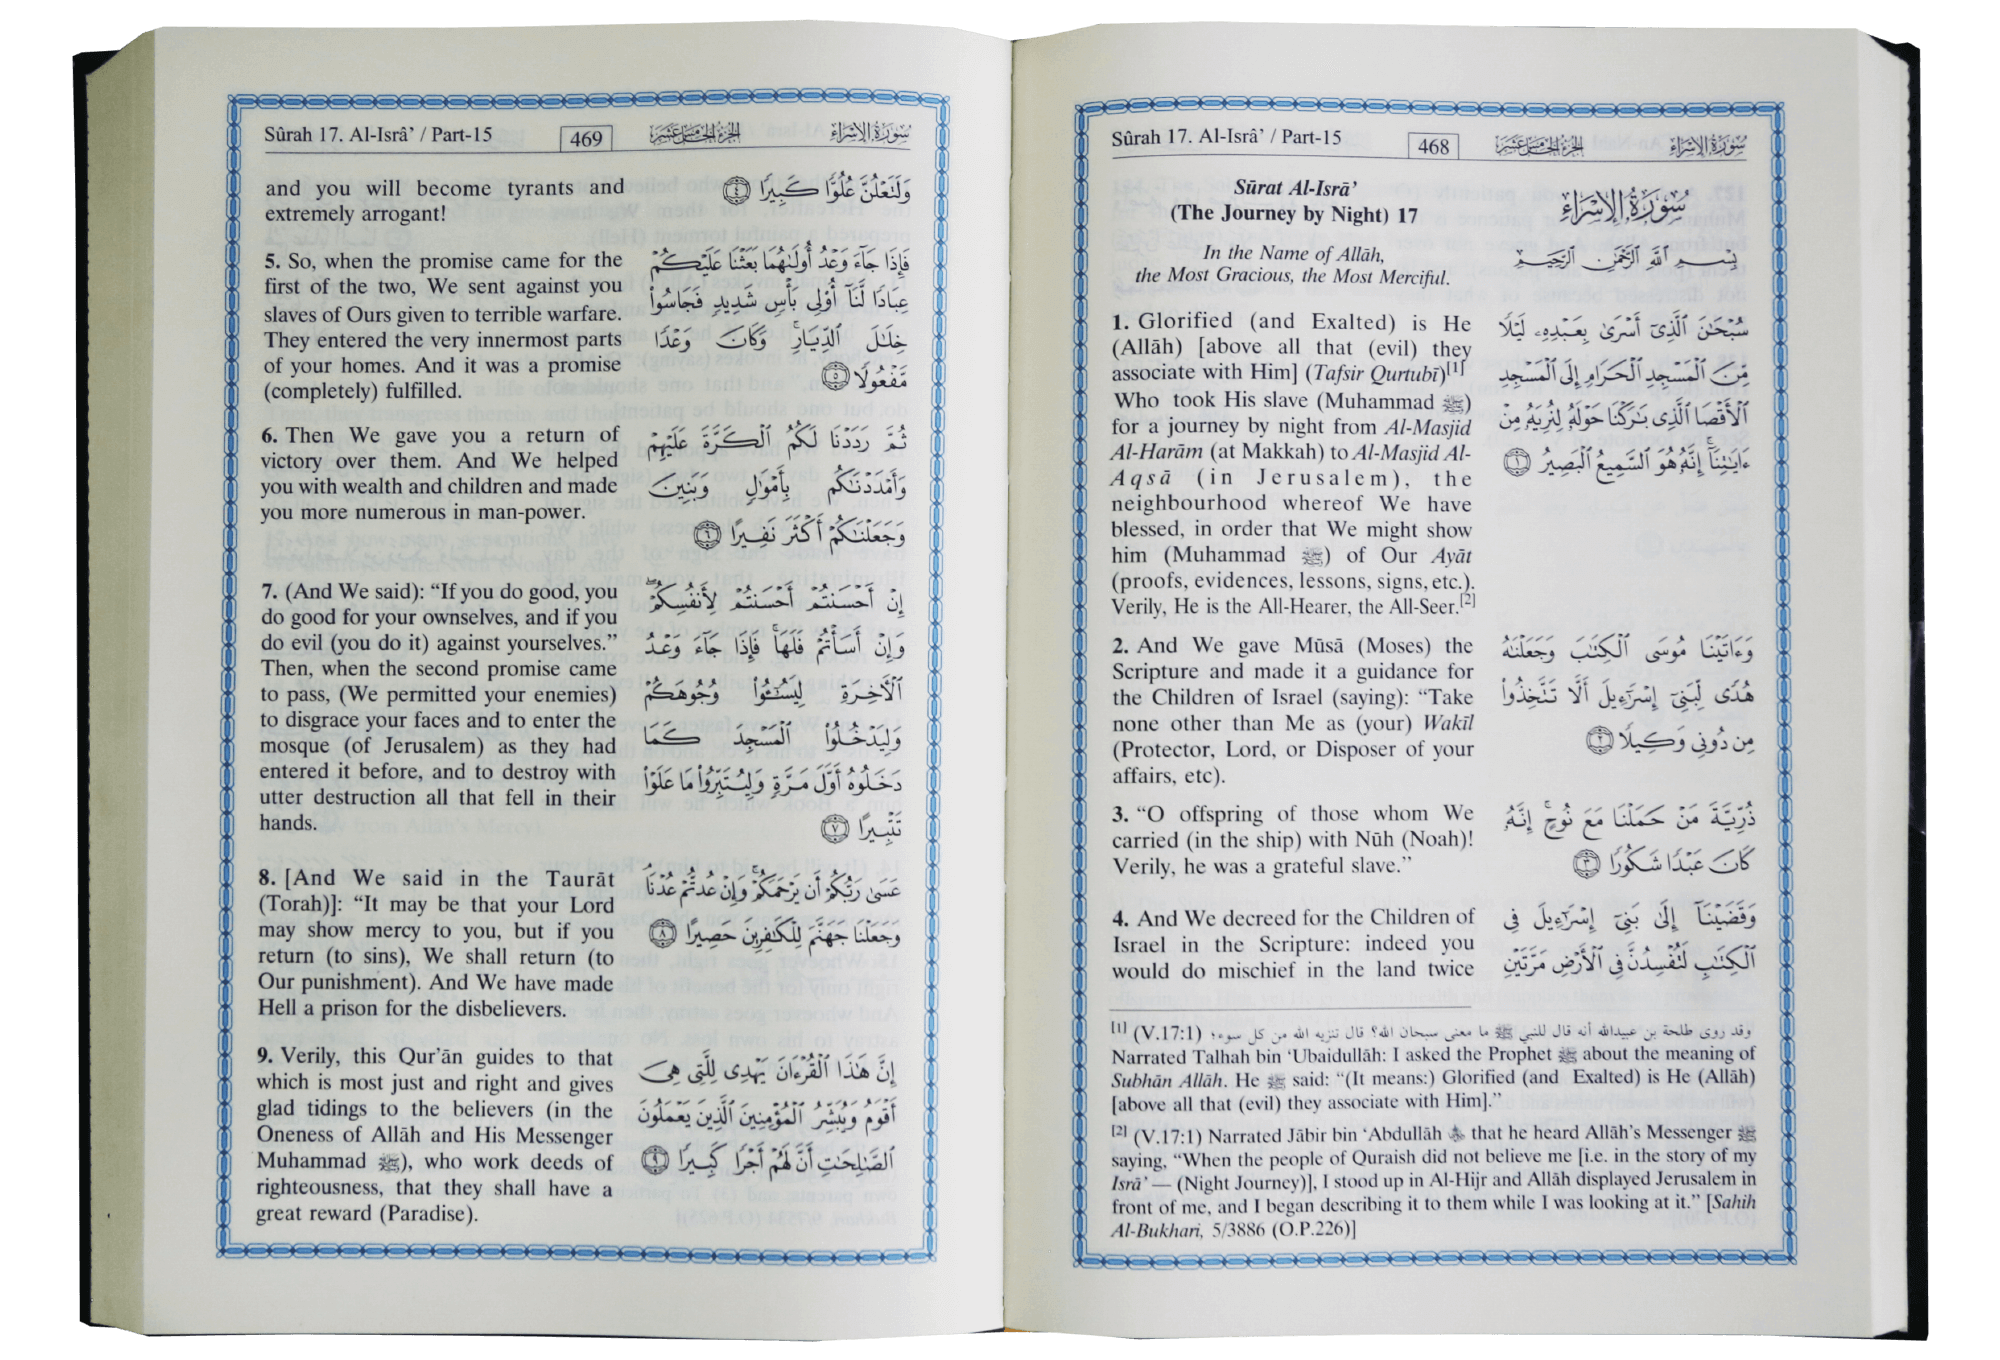 Sûrah 17. Al-Isrâ’ / Part-15 468 الجزء الخامس عشر سورة الإسراء
Sūrat Al-Isrā’
(The Journey by Night) 17
In the Name of Allāh,
the Most Gracious, the Most Merciful.
1. Glorified (and Exalted) is He
(Allāh) [above all that (evil) they
associate with Him] (Tafsir Qurtubī)[1]
Who took His slave (Muhammad ﷺ)
for a journey by night from Al-Masjid
Al-Harām (at Makkah) to Al-Masjid Al-
Aqsā (in Jerusalem), the
neighbourhood whereof We have
blessed, in order that We might show
him (Muhammad ﷺ) of Our Ayāt
(proofs, evidences, lessons, signs, etc.).
Verily, He is the All-Hearer, the All-Seer.[2]
2. And We gave Mūsā (Moses) the
Scripture and made it a guidance for
the Children of Israel (saying): “Take
none other than Me as (your) Wakīl
(Protector, Lord, or Disposer of your
affairs, etc).
3. “O offspring of those whom We
carried (in the ship) with Nūh (Noah)!
Verily, he was a grateful slave.”
4. And We decreed for the Children of
Israel in the Scripture: indeed you
would do mischief in the land twice
سُورَةُ الإِسْرَاءِ
بِسْمِ اللَّهِ الرَّحْمَٰنِ الرَّحِيمِ
سُبْحَٰنَ ٱلَّذِىٓ أَسْرَىٰ بِعَبْدِهِۦ لَيْلًا
مِّنَ ٱلْمَسْجِدِ ٱلْحَرَامِ إِلَى ٱلْمَسْجِدِ
ٱلْأَقْصَا ٱلَّذِى بَٰرَكْنَا حَوْلَهُۥ لِنُرِيَهُۥ مِنْ
ءَايَٰتِنَآ ۚ إِنَّهُۥ هُوَ ٱلسَّمِيعُ ٱلْبَصِيرُ ١
وَءَاتَيْنَا مُوسَى ٱلْكِتَٰبَ وَجَعَلْنَٰهُ
هُدًى لِّبَنِىٓ إِسْرَٰٓءِيلَ أَلَّا تَتَّخِذُوا۟
مِن دُونِى وَكِيلًا ٢
ذُرِّيَّةَ مَنْ حَمَلْنَا مَعَ نُوحٍ ۚ إِنَّهُۥ
كَانَ عَبْدًا شَكُورًا ٣
وَقَضَيْنَآ إِلَىٰ بَنِىٓ إِسْرَٰٓءِيلَ فِى
ٱلْكِتَٰبِ لَتُفْسِدُنَّ فِى ٱلْأَرْضِ مَرَّتَيْنِ
[1] (V.17:1) وقد روى طلحة بن عبيدالله أنه قال للنبي ﷺ ما معنى سبحان الله؟ قال تنزيه الله من كل سوء؛
Narrated Talhah bin ‘Ubaidullāh: I asked the Prophet ﷺ about the meaning of
Subhān Allāh. He ﷺ said: “(It means:) Glorified (and Exalted) is He (Allāh)
[above all that (evil) they associate with Him].”
[2] (V.17:1) Narrated Jābir bin ‘Abdullāh that he heard Allāh’s Messenger ﷺ
saying, “When the people of Quraish did not believe me [i.e. in the story of my
Isrā’ — (Night Journey)], I stood up in Al-Hijr and Allāh displayed Jerusalem in
front of me, and I began describing it to them while I was looking at it.” [Sahih
Al-Bukhari, 5/3886 (O.P.226)]
Sûrah 17. Al-Isrâ’ / Part-15 469 الجزء الخامس عشر سورة الإسراء
and you will become tyrants and
extremely arrogant!
5. So, when the promise came for the
first of the two, We sent against you
slaves of Ours given to terrible warfare.
They entered the very innermost parts
of your homes. And it was a promise
(completely) fulfilled.
6. Then We gave you a return of
victory over them. And We helped
you with wealth and children and made
you more numerous in man-power.
7. (And We said): “If you do good, you
do good for your ownselves, and if you
do evil (you do it) against yourselves.”
Then, when the second promise came
to pass, (We permitted your enemies)
to disgrace your faces and to enter the
mosque (of Jerusalem) as they had
entered it before, and to destroy with
utter destruction all that fell in their
hands.
8. [And We said in the Taurāt
(Torah)]: “It may be that your Lord
may show mercy to you, but if you
return (to sins), We shall return (to
Our punishment). And We have made
Hell a prison for the disbelievers.
9. Verily, this Qur’ān guides to that
which is most just and right and gives
glad tidings to the believers (in the
Oneness of Allāh and His Messenger
Muhammad ﷺ), who work deeds of
righteousness, that they shall have a
great reward (Paradise).
وَلَتَعْلُنَّ عُلُوًّا كَبِيرًا ٤
فَإِذَا جَآءَ وَعْدُ أُولَىٰهُمَا بَعَثْنَا عَلَيْكُمْ
عِبَادًا لَّنَآ أُو۟لِى بَأْسٍ شَدِيدٍ فَجَاسُوا۟
خِلَٰلَ ٱلدِّيَارِ ۚ وَكَانَ وَعْدًا
مَّفْعُولًا ٥
ثُمَّ رَدَدْنَا لَكُمُ ٱلْكَرَّةَ عَلَيْهِمْ
وَأَمْدَدْنَٰكُم بِأَمْوَٰلٍ وَبَنِينَ
وَجَعَلْنَٰكُمْ أَكْثَرَ نَفِيرًا ٦
إِنْ أَحْسَنتُمْ أَحْسَنتُمْ لِأَنفُسِكُمْ ۖ
وَإِنْ أَسَأْتُمْ فَلَهَا ۚ فَإِذَا جَآءَ وَعْدُ
ٱلْءَاخِرَةِ لِيَسُۥٓـُٔوا۟ وُجُوهَكُمْ
وَلِيَدْخُلُوا۟ ٱلْمَسْجِدَ كَمَا
دَخَلُوهُ أَوَّلَ مَرَّةٍ وَلِيُتَبِّرُوا۟ مَا عَلَوْا۟
تَتْبِيرًا ٧
عَسَىٰ رَبُّكُمْ أَن يَرْحَمَكُمْ ۚ وَإِنْ عُدتُّمْ عُدْنَا ۘ
وَجَعَلْنَا جَهَنَّمَ لِلْكَٰفِرِينَ حَصِيرًا ٨
إِنَّ هَٰذَا ٱلْقُرْءَانَ يَهْدِى لِلَّتِى هِىَ
أَقْوَمُ وَيُبَشِّرُ ٱلْمُؤْمِنِينَ ٱلَّذِينَ يَعْمَلُونَ
ٱلصَّٰلِحَٰتِ أَنَّ لَهُمْ أَجْرًا كَبِيرًا ٩